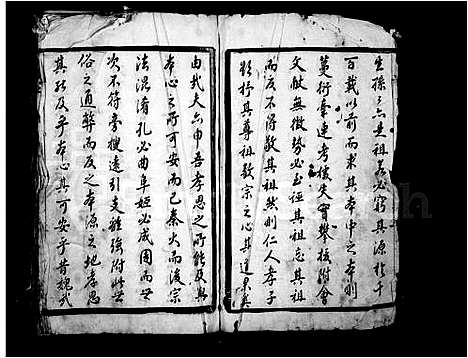 生孫之六世祖若必窮其源於千
百載以前而求其本中之本則
蔓衍牽連考核失實攀援附會
文獻無徵勢必至誣其祖忘其祖
而反不得敬其祖然則仁人孝子
欲抒其尊祖敬宗之心其道奚
由哉夫六申吾孝思之所能及與
本心之所可安而已秦火而後宗
法混淆孔必曲阜姬必咸國而世
次不符旁搜遠引支離強附此世
俗之通弊而反之本源之地孝思
其能及乎本心其可安乎昔魏武